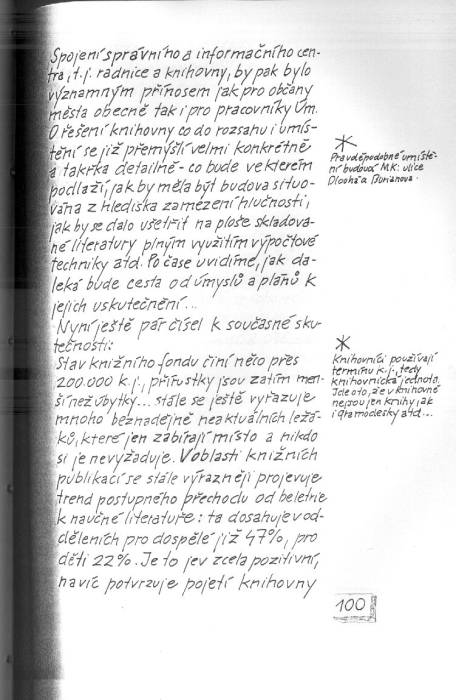 Spojení správního a informačního cen-
tra, t.j. radnice a knihovny, by pak bylo
významným přínosem jak pro občany
města obecně tak i pro pracovníky ÚM.
O řešení knihovny co do rozsahu i umís-
tění se již přemýšlí velmi konkrétně
a takřka detailně - co bude ve kterém
podlaží, jak by měla být budova situo-
vána z hlediska zamezení hlučnosti,
jak by se dalo ušetřit na ploše skladova-
né literatury plným využitím výpočtové
techniky atd. Po čase uvidíme, jak da-
leká bude cesta od úmyslů a plánů k
jejich uskutečnění...
Nyní ještě pár čísel k současné sku-
tečnosti:
Stav knižního fondu činí něco přes
200.000 k.j., přírustky jsou zatím men-
ší než úbytky... stále se ještě vyřazuje
mnoho beznadějně neaktuálních ležá-
ků, které jen zabírají místo a nikdo
si je nevyžaduje. V oblasti knižních
publikací se stále výrazněji projevuje
trend postupného přechodu od beletrie
k naučné literatuře: ta dosahuje v od-
děleních pro dospělé již 47%, pro
děti 22%. Je to jev zcela pozitivní,
navíc potvrzuje pojetí knihovny
*
Pravděpodobné umístě-
ní budovy MK: ulice
Dlouhá a Burianova.
*
Knihovníci používají
termínu k.j., tedy
knihovnická jednota.
Jde o to, že v knihovně
nejsou jen knihy jak
i gramodesky atd...
100